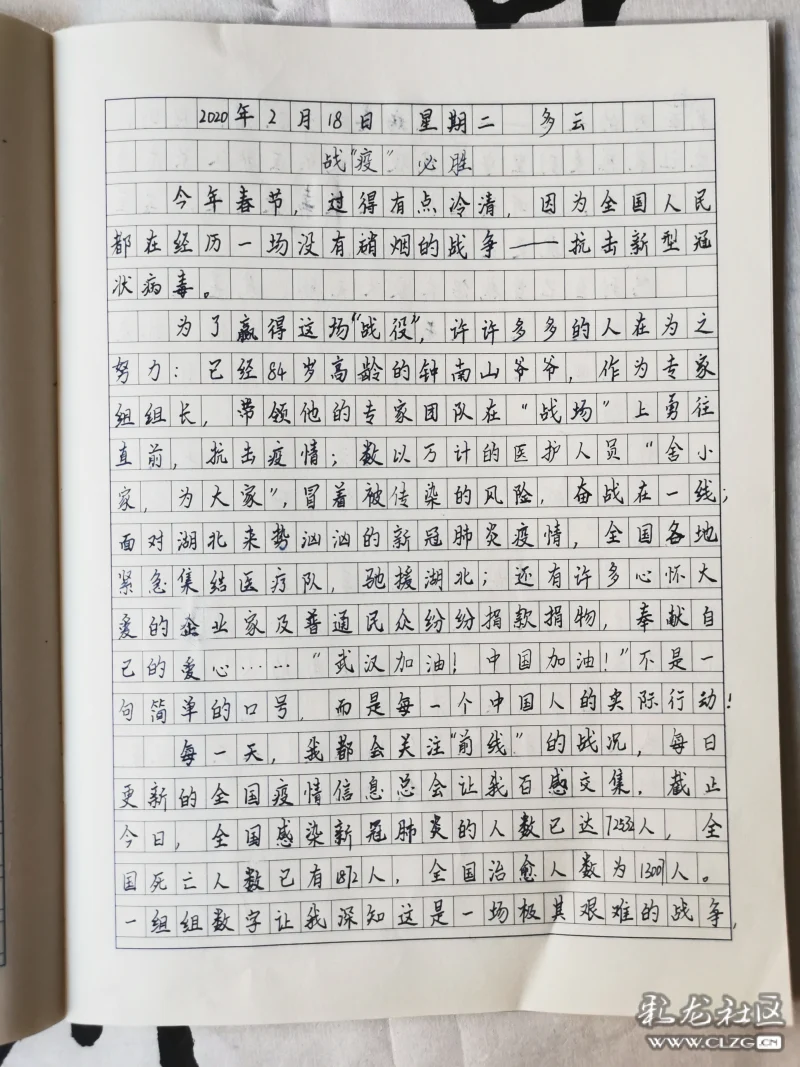 2020年2月18日 星期二 多云
战"疫"必胜
今年春节，过得有点冷清，因为全国人民
都在经历一场没有硝烟的战争——抗击新型冠
状病毒。
为了赢得这场"战役"，许许多多的人在为之
努力：已经84岁高龄的钟南山爷爷，作为专家
组组长，带领他的专家团队在"战场"上勇往
直前，抗击疫情；数以万计的医护人员"舍小
家，为大家"，冒着被传染的风险，奋战在一线；
面对湖北来势汹汹的新冠肺炎疫情，全国各地
紧急集结医疗队，驰援湖北；还有许多心怀大
爱的企业家及普通民众纷纷捐款捐物，奉献自
己的爱心……"武汉加油！中国加油！"不是一
句简单的口号，而是每一个中国人的实际行动！
每一天，我都会关注"前线"的战况，每日
更新的全国疫情信息总会让我百感交集，截止
今日，全国感染新冠肺炎的人数已达72532人，全
国死亡人数已有1872人，全国治愈人数为13007人。
一组组数字让我深知这是一场极其艰难的战争，
乳龙社区
WWW.CLZG.CN